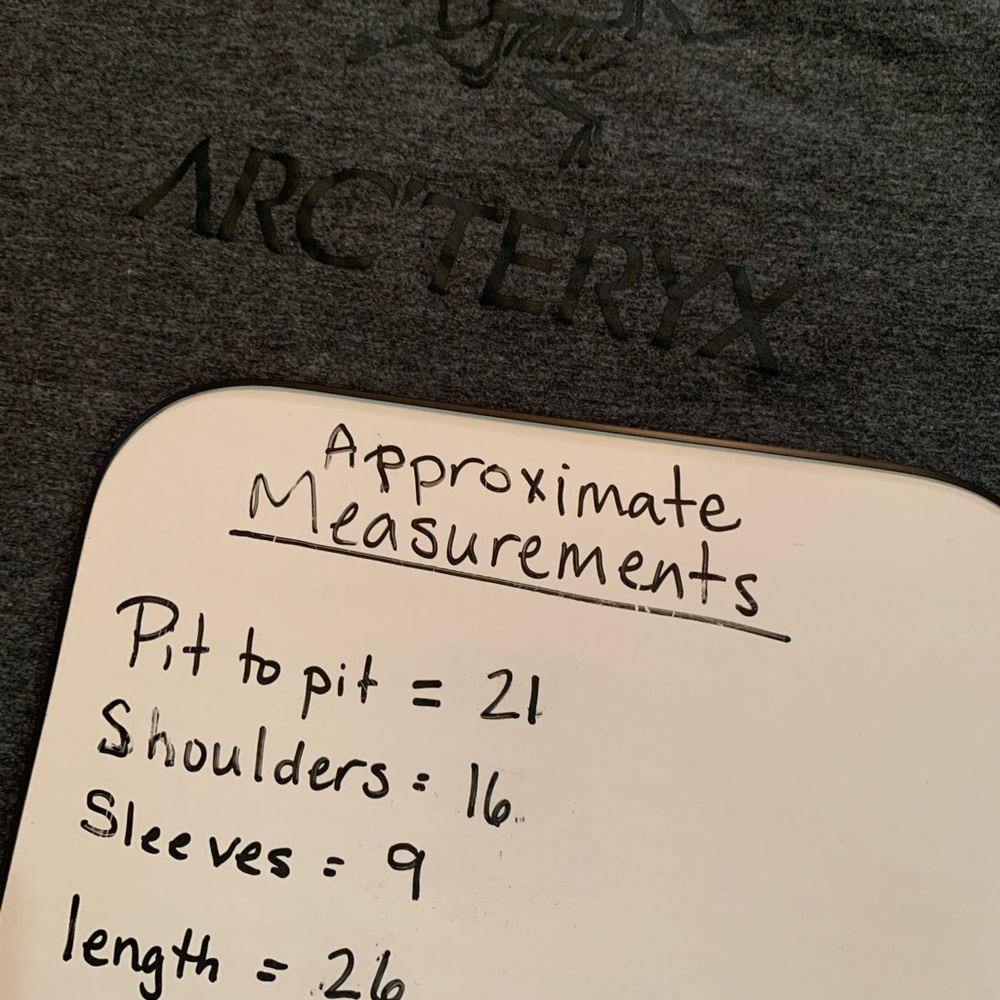 ARC'TERYX
Approximate
Measurements
Pit to pit = 21
Shoulders = 16
Sleeves = 9
length = 26